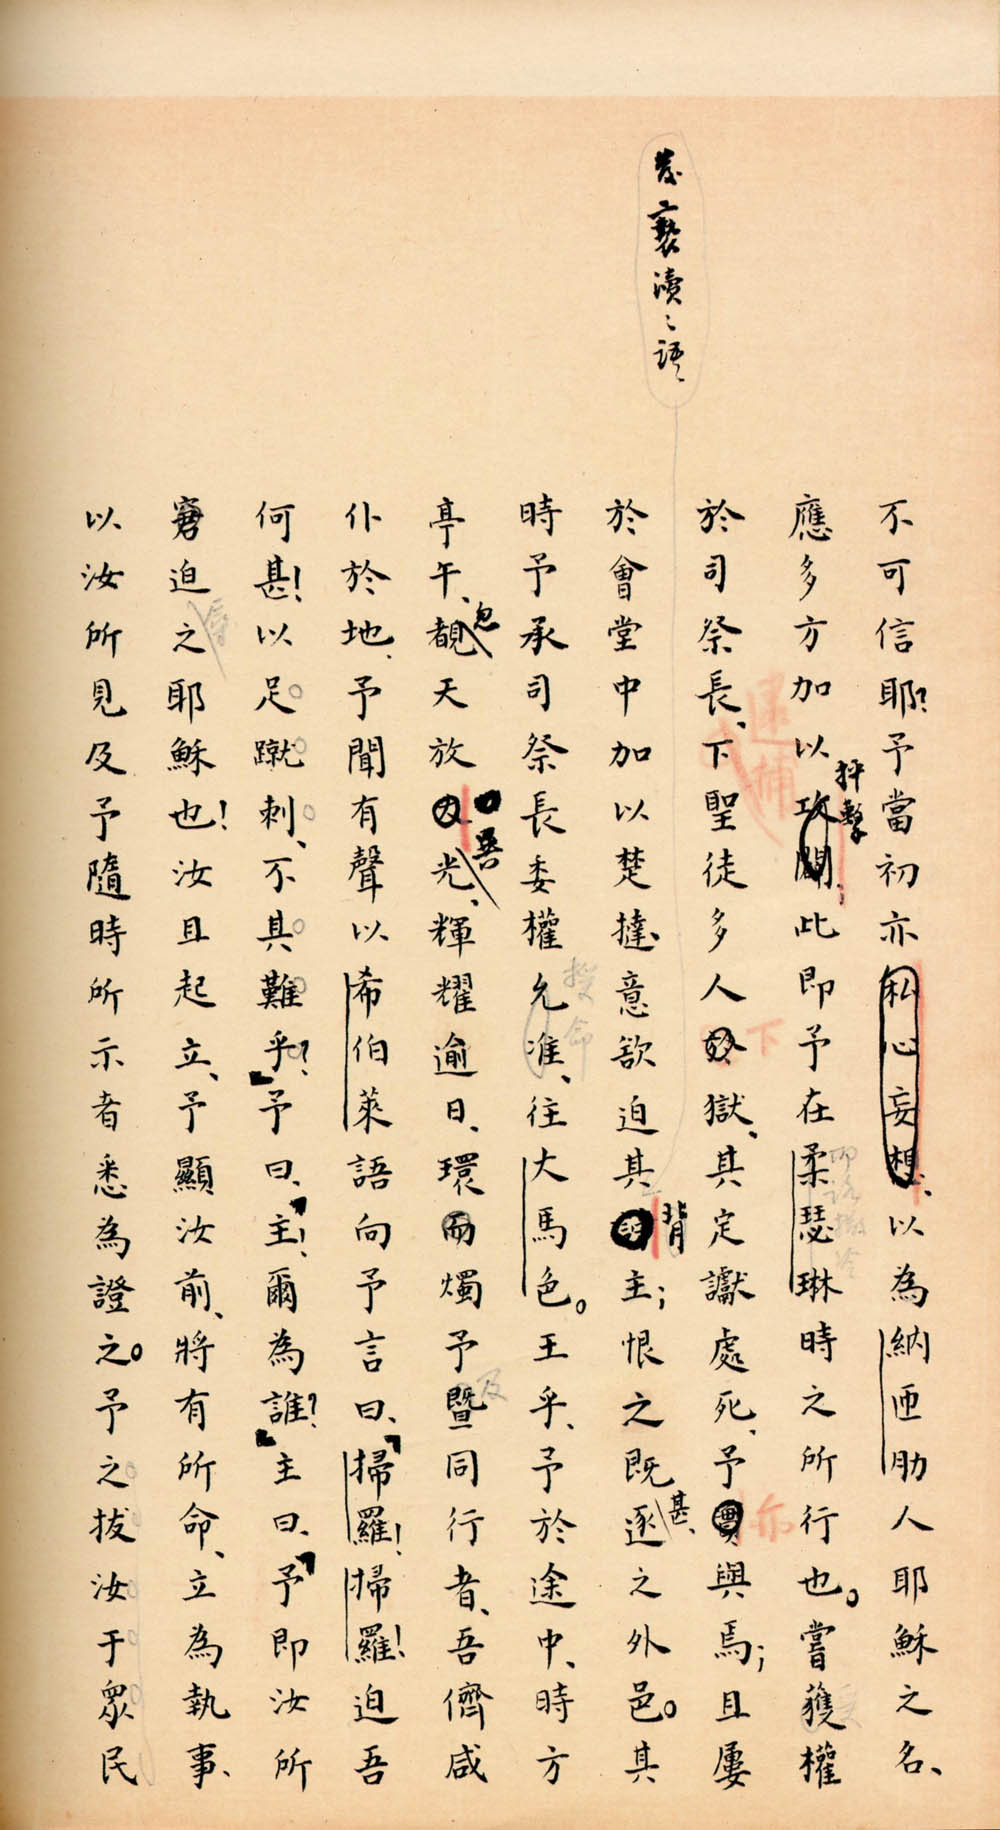 發褻瀆之語
不可信耶?予當初亦私心妄想、以為納匝肋人耶穌之名、
應多方加以攻闢;此即予在柔瑟琳時之所行也。嘗獲權
抨擊
耶路撒冷
於司祭長、下聖徒多人於獄、其定讞處死、予實與焉;且屢
逮捕
下
亦
於會堂中加以楚撻、意欲迫其主;恨之既逐之外邑。其
背
甚、
時予承司祭長委權允准、往大馬色。王乎、予於途中、時方
授命
亭午、覩天放光、輝耀逾日、環而燭予暨同行者、吾儕咸
忽
異
及
仆於地、予聞有聲以希伯萊語向予言曰、「掃羅!掃羅!迫吾
何甚!以足蹴刺、不其難乎?」予曰、「主!爾為誰?」主曰、「予即汝所
窘迫之耶穌也!汝且起立、予顯汝前、將有所命、立為執事、
以汝所見及予隨時所示者悉為證之。予之拔汝于眾民